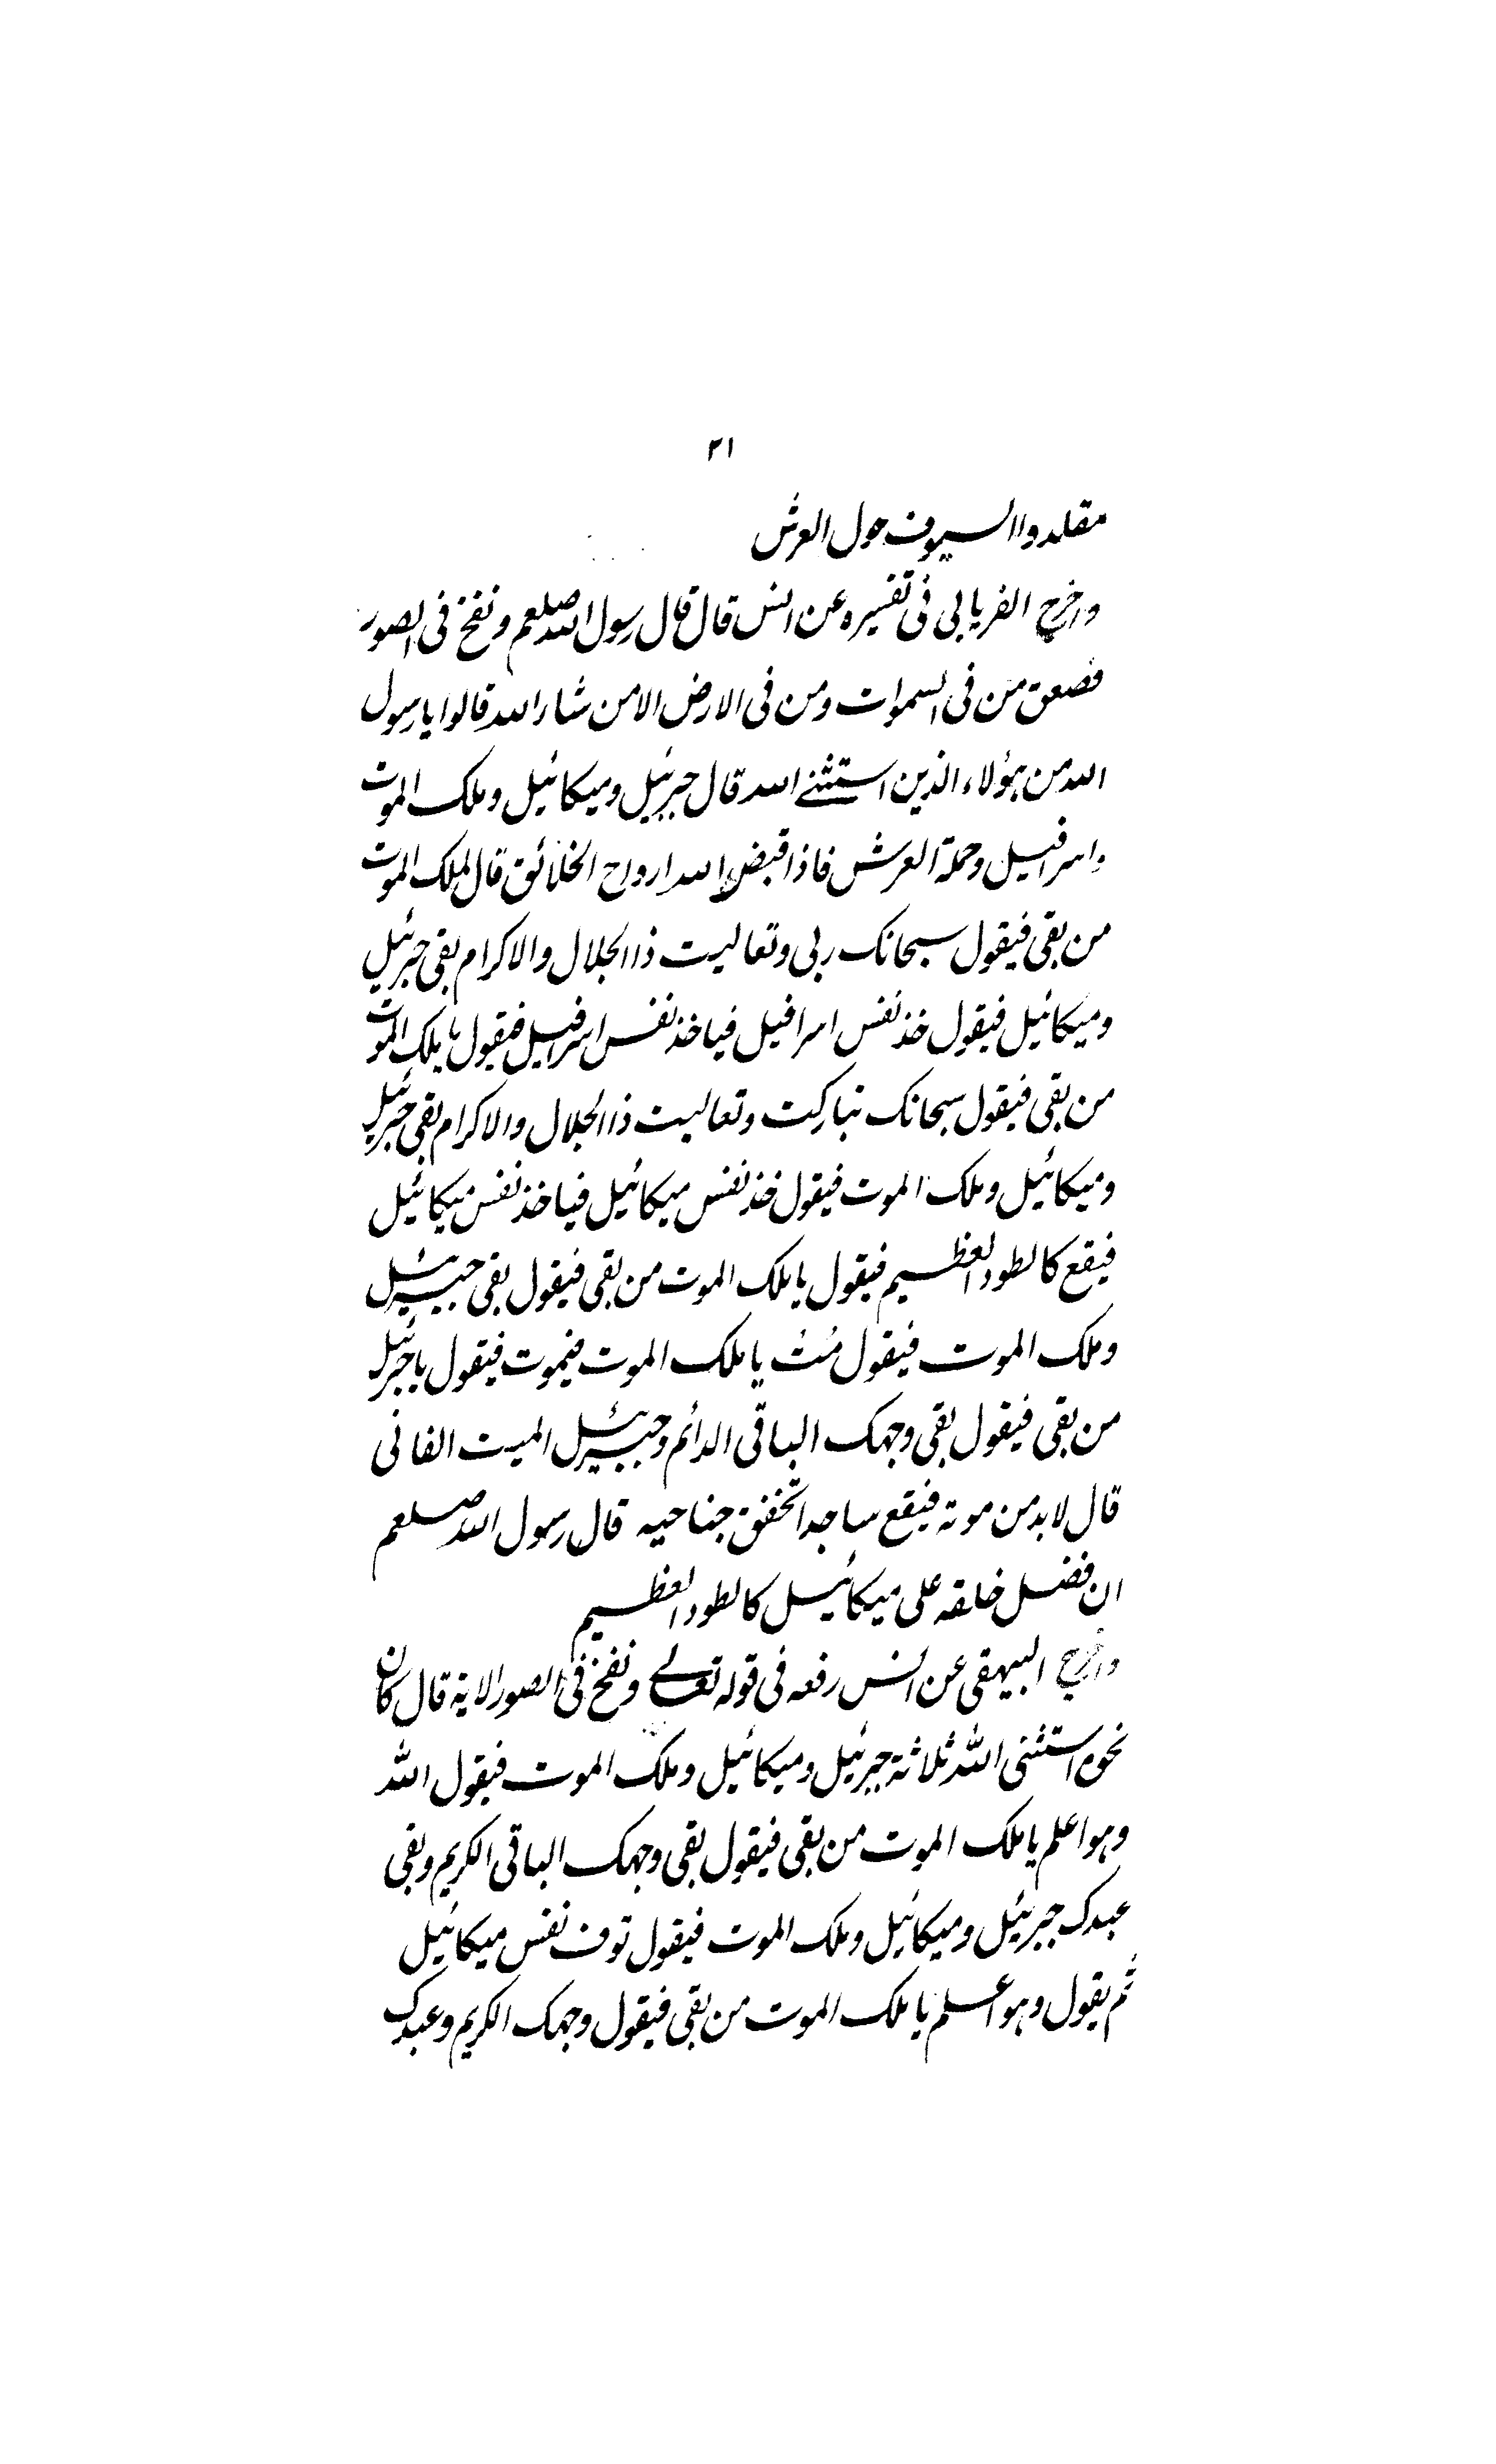 ٢١
مقلدوا السيوف حول العرش
واخرج الفريابى فى تفسيره عن انس قال قال رسول الله صلعم ونفخ فى الصور
فصعق من فى السموات ومن فى الارض الا من شاء الله قالوا يا رسول
الله من هؤلاء الذين استثنے الله قال جبرئيل وميكائيل وملك الموت
واسرافيل وحملة العرش فاذا قبض الله ارواح الخلائق قال لملك الموت
من بقى فيقول سبحانك ربى وتعاليت ذا الجلال والاكرام بقى جبرئيل
وميكائيل فيقول خذ نفس اسرافيل فياخذ نفس اسرافيل فيقول يا ملك الموت
من بقى فيقول سبحانك تباركت وتعاليت ذا الجلال والاكرام بقى جبرئيل
وميكائيل وملك الموت فيقول خذ نفس ميكائيل فياخذ نفس ميكائيل
فيقع كالطود العظيم فيقول يا ملك الموت من بقى فيقول بقى جبرئيل
وملك الموت فيقول مُت يا ملك الموت فيموت فيقول يا جبرئيل
من بقى فيقول بقى وجهك الباقى الدائم وجبرئيل الميت الفانى
قال لابد من موته فيقع ساجدا تخفق جناحيه قال رسول الله صلعم
ان فضل خلقه على ميكائيل كالطود العظيم
واخرج البيهقى عن انس رفعه فى قوله تعالے ونفخ فى الصور الاية قال كان
نحوه استثنى الله ثلاثة جبرئيل وميكائيل وملك الموت فيقول الله
وهو اعلم يا ملك الموت من بقى فيقول بقى وجهك الباقى الكريم وبقى
عبدك جبرئيل وميكائيل وملك الموت فيقول توف نفس ميكائيل
ثم يقول وهو اعلم يا ملك الموت من بقى فيقول وجهك الكريم وعبدك